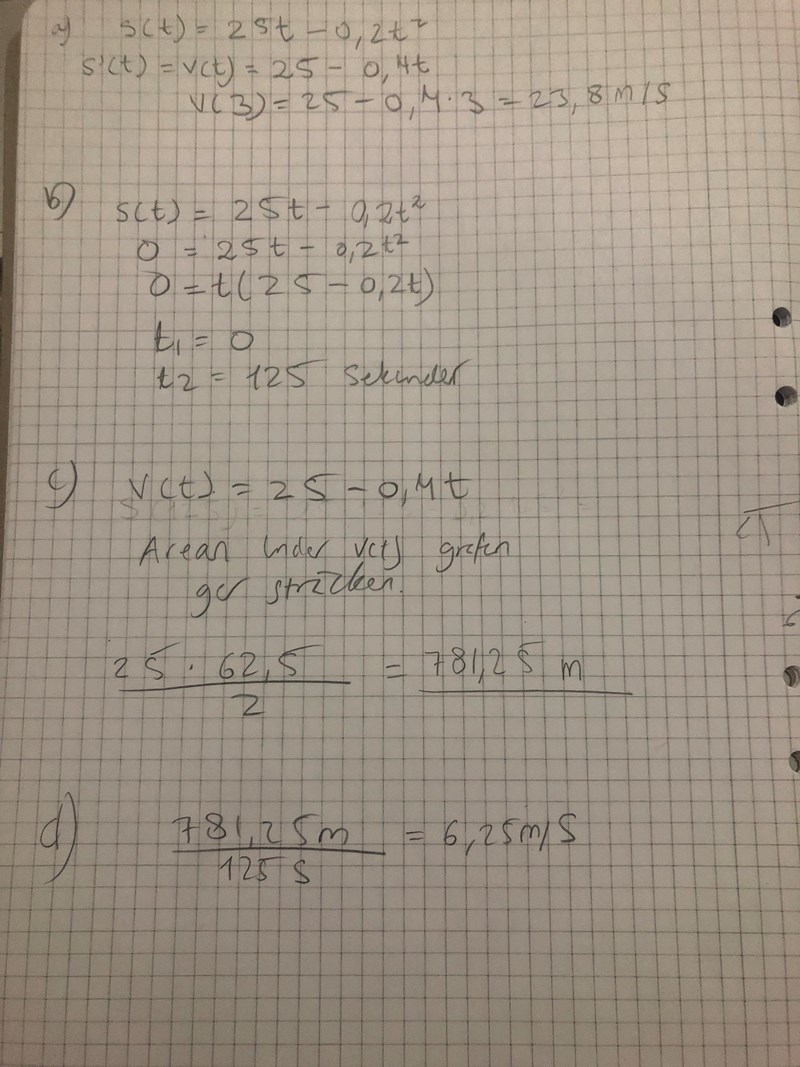 a) s(t) = 25t - 0,2t²
s'(t) = v(t) = 25 - 0,4t
v(3) = 25 - 0,4·3 = 23,8 m/s
b) s(t) = 25t - 0,2t²
0 = 25t - 0,2t²
0 = t(25 - 0,2t)
t₁ = 0
t₂ = 125 sekunder
c) v(t) = 25 - 0,4t
Arean under v(t) grafen
ger sträckan.
25 · 62,5 / 2 = 781,25 m
d) 781,25 m / 125 s = 6,25 m/s